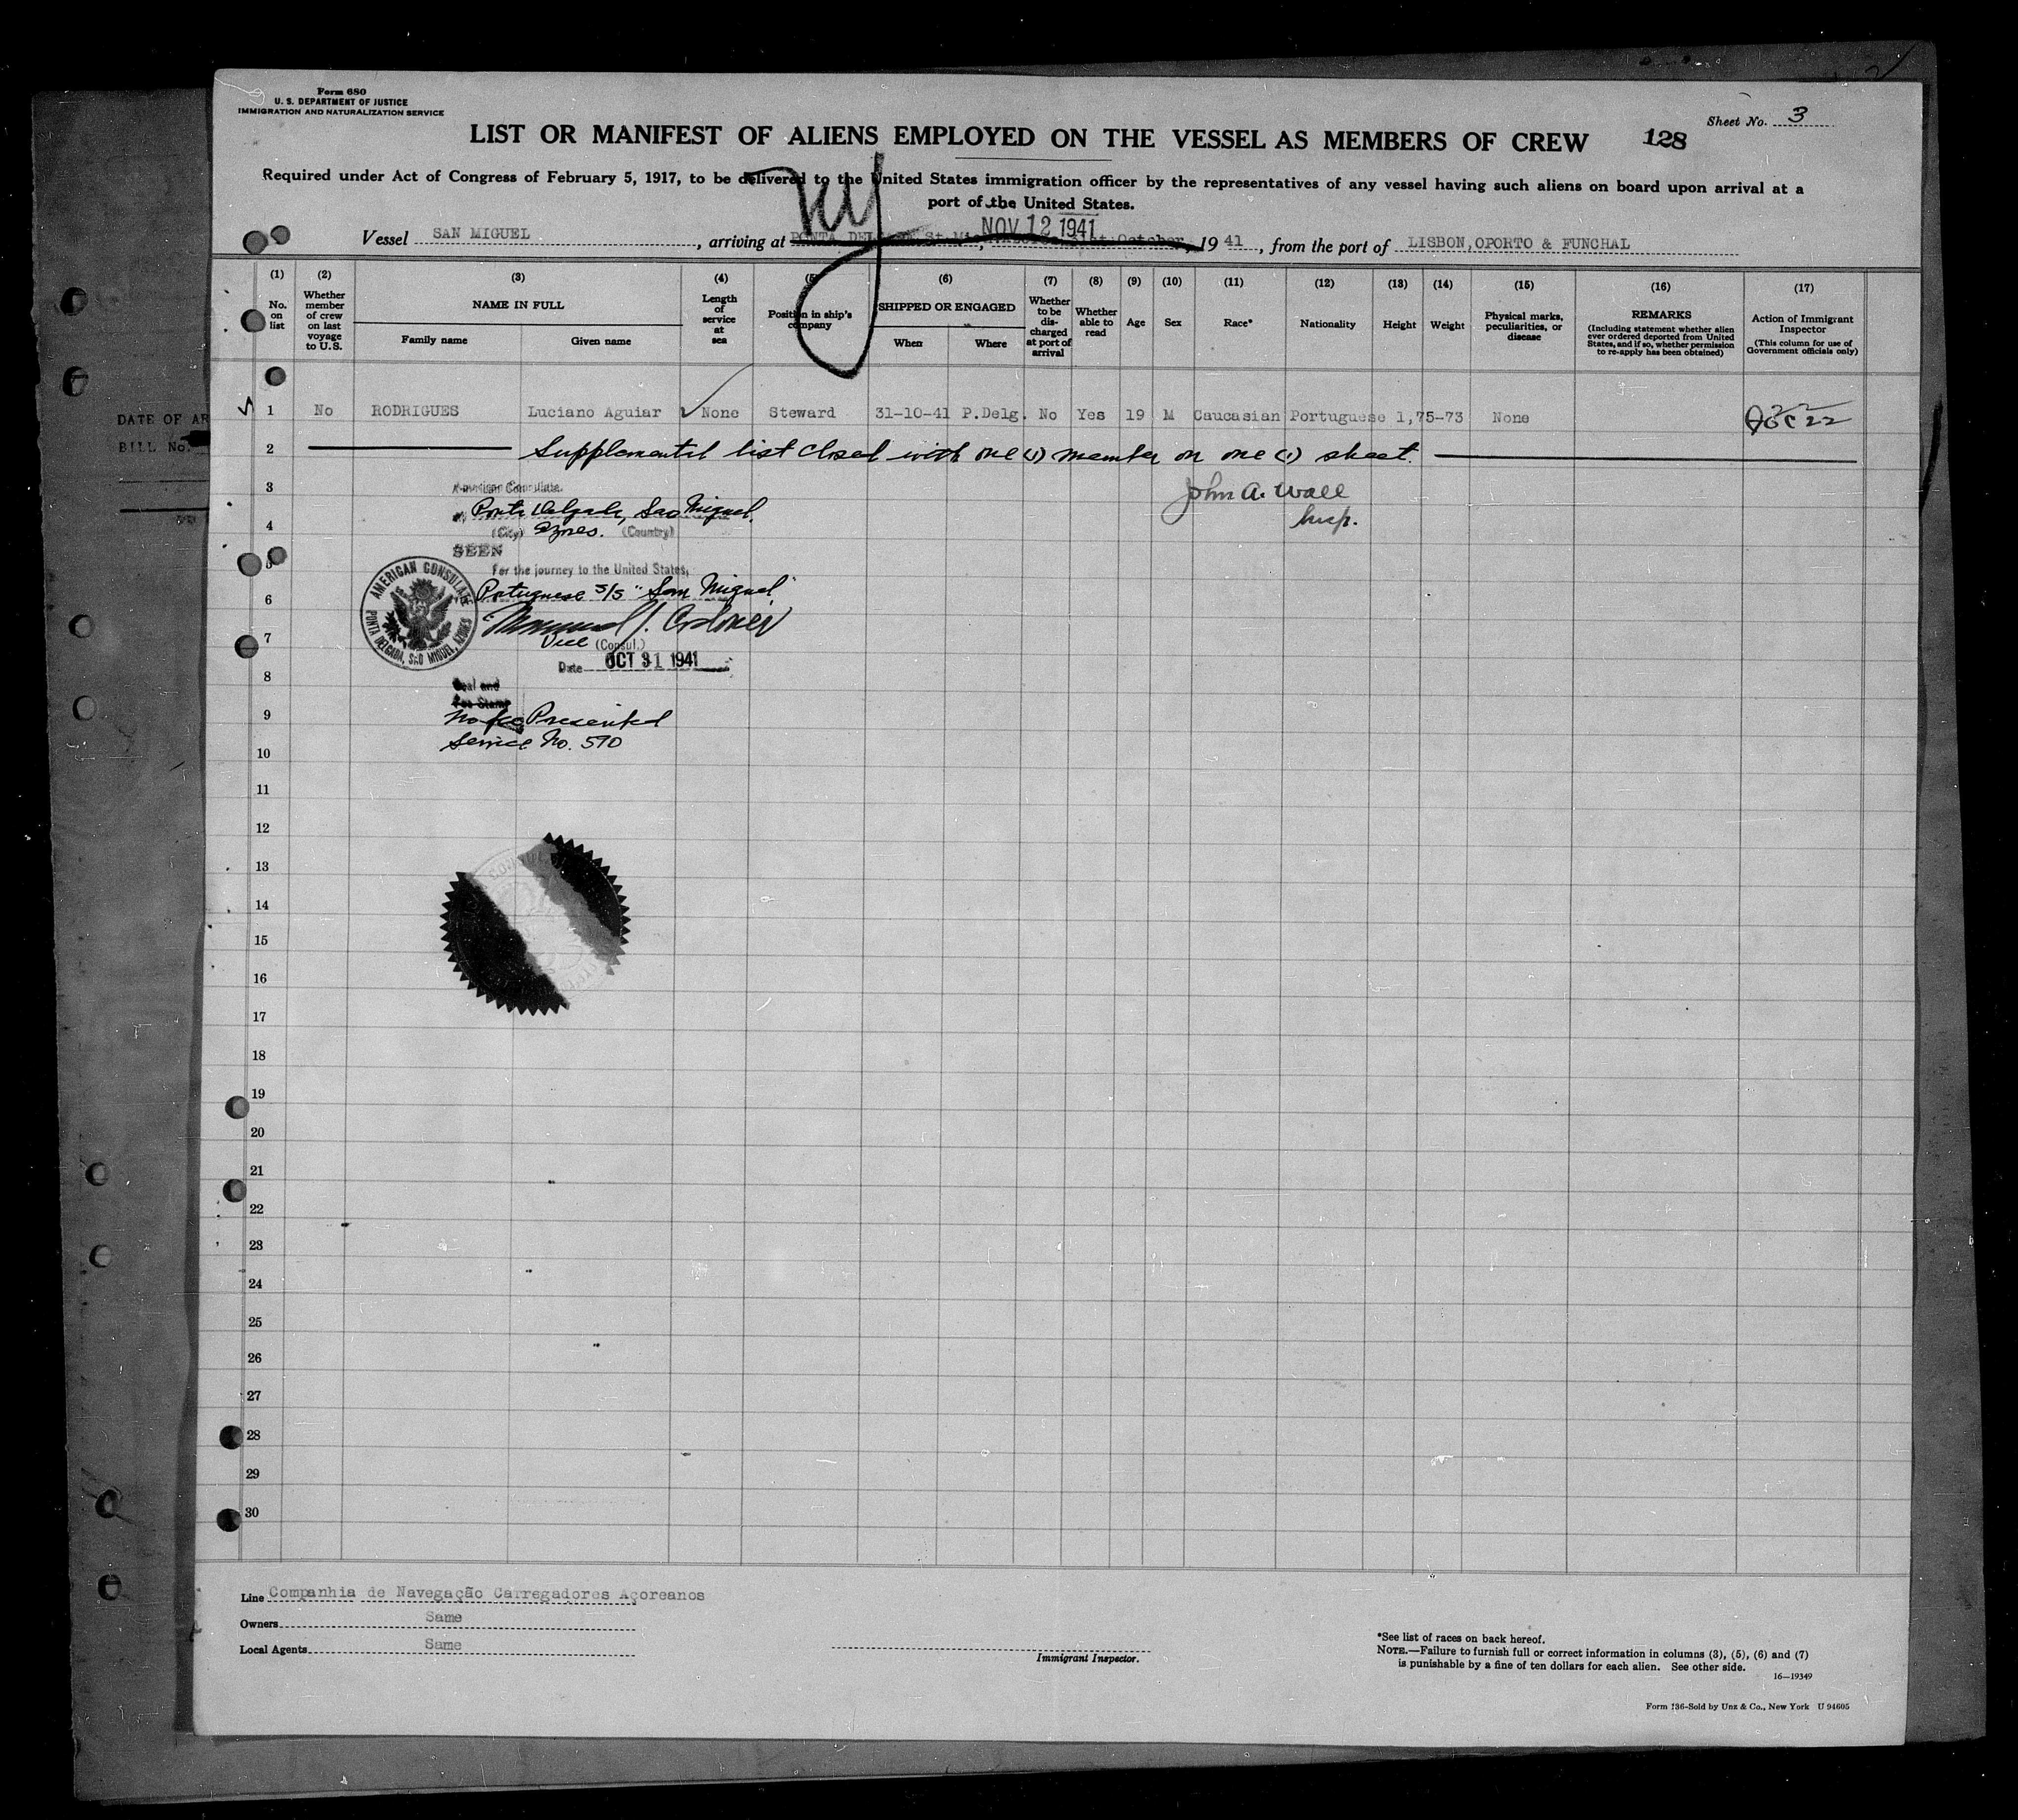 Form 680
U. S. DEPARTMENT OF JUSTICE
IMMIGRATION AND NATURALIZATION SERVICE
Sheet No. 3
LIST OR MANIFEST OF ALIENS EMPLOYED ON THE VESSEL AS MEMBERS OF CREW 128
Required under Act of Congress of February 5, 1917, to be delivered to the United States immigration officer by the representatives of any vessel having such aliens on board upon arrival at a
port of the United States.
NOV 12 1941
Vessel SAN MIGUEL, arriving at PONTA October, 1941, from the port of LISBON, OPORTO & FUNCHAL
NY
(1) (2) (3) (4) (5) (6) (7) (8) (9) (10) (11) (12) (13) (14) (15) (16) (17)
No. on list
Whether member of crew on last voyage to U.S.
NAME IN FULL
Family name
Given name
Length of service at sea
Position in ship's company
SHIPPED OR ENGAGED
When
Where
Whether to be discharged at port of arrival
Whether able to read
Age
Sex
Race*
Nationality
Height
Weight
Physical marks, peculiarities, or disease
REMARKS
(Including statement whether alien ever ordered deported from United States, and if so, whether permission to re-apply has been obtained)
Action of Immigrant Inspector
(This column for use of Government officials only)
DATE OF AR
BILL No.
1 No RODRIGUES Luciano Aguiar None Steward 31-10-41 P.Delg. No Yes 19 M Caucasian Portuguese 1,75-73 None
2 Supplemental list closed with one (1) member on one (1) sheet.
3 American Consulate. John A. Wall
Ponta Delgada, Sao Miguel, Insp.
4 (City) Azores. (Country)
SEEN
5 For the journey to the United States,
6 Portuguese S/S "San Miguel"
AMERICAN CONSULATE
PONTA DELGADA, SAO MIGUEL, AZORES
7 Vice (Consul.)
Date OCT 31 1941
8 Seal and
Fee Stamp
9 No fee Presented
Service No. 570
10
11
12
13
14
15
16
17
18
19
20
21
22
23
24
25
26
27
28
29
30
Line Companhia de Navegação Carregadores Açoreanos
Owners Same
Local Agents Same
Immigrant Inspector.
*See list of races on back hereof.
NOTE.—Failure to furnish full or correct information in columns (3), (5), (6) and (7)
is punishable by a fine of ten dollars for each alien. See other side.
16—19349
Form 136-Sold by Unz & Co., New York U 94605